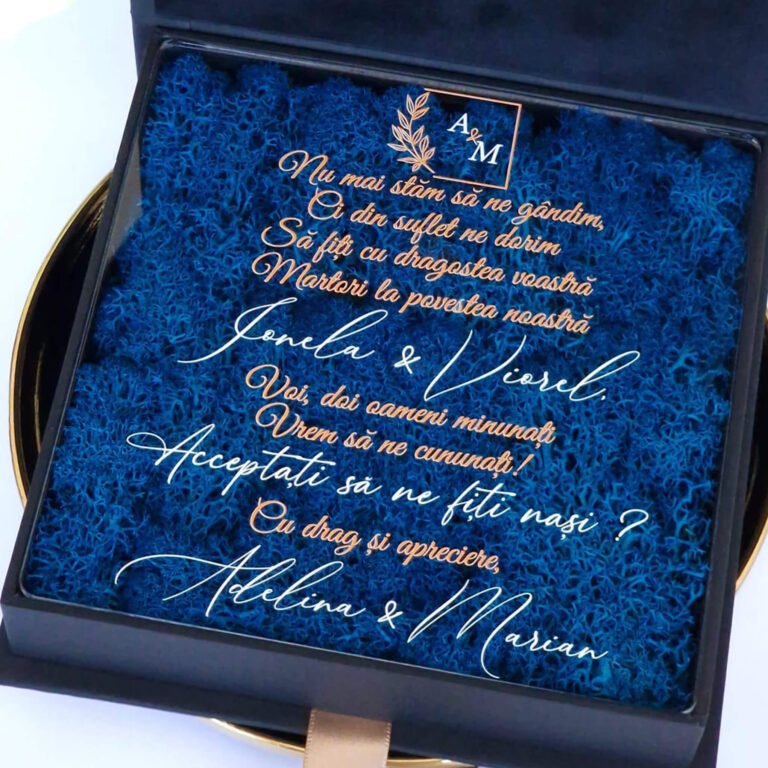 A & M
Nu mai stăm să ne gândim,
Ci din suflet ne dorim
Să fiți cu dragostea voastră
Martori la povestea noastră
Ionela & Viorel.
Voi, doi oameni minunați
Vrem să ne cununați!
Acceptați să ne fiți nași ?
Cu drag și apreciere,
Adelina & Marian